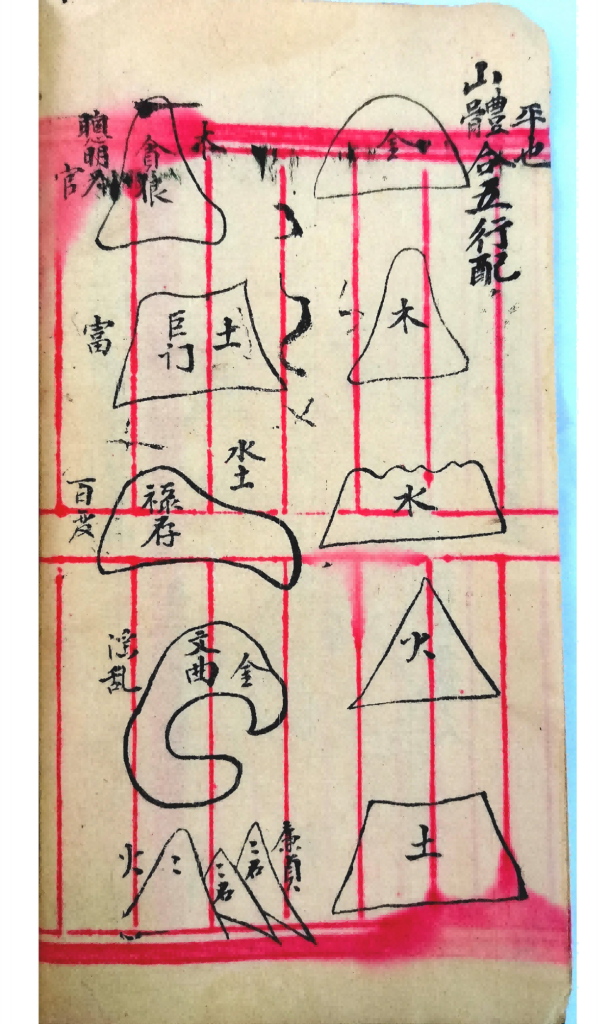 山體合五行配
平也
金
木
水
火
土
木
貪狼
聰明
官
土
巨门
富
水土
禄存
文曲
金
淫乱
廉貞
二石
二石
二
火